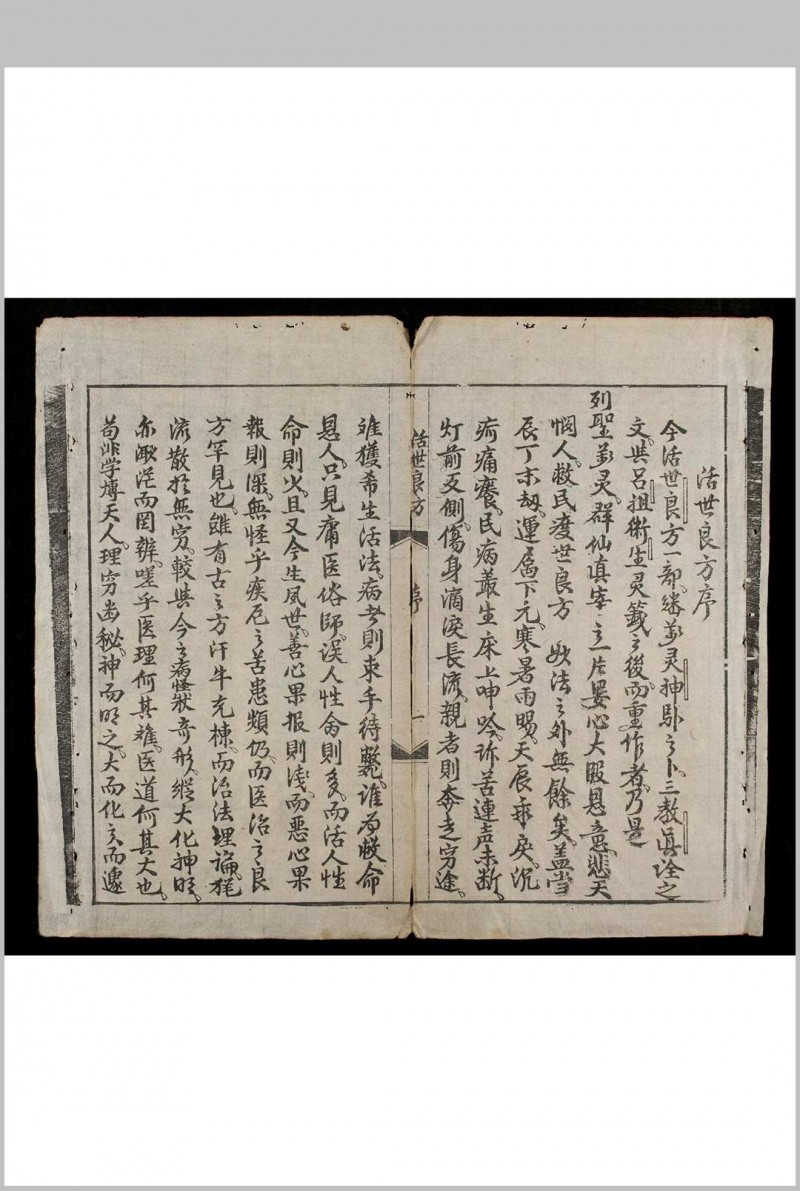 活世良方序
今活世良方一部繼萬灵神卧之卜三教真詮之
文共呂祖衛生灵籤之後而重作者乃是
列聖萬灵群仙真宰之一片婆心大賑恩意悲天
憫人救民渡世良方 妙法之外無餘矣盖当
辰丁末劫運属下元寒暑雨暘天辰乖戾沉
痾痛癢民病叢生床上呻吟訴苦連声未断
灯前反側傷身滴淚長流親者則奔走穷途
活世良方 序 一
难獲希生活法病者則束手待斃谁为救命
恩人只見庸医俗師误人性命則多而活人性
命則少且又今生夙世善心果报則浅而惡心果
報則深無怪乎疾厄之苦患頻仍而医治之良
方罕見也雖有古之方汗牛充棟而治法理論
流散於無穷較共今之病怪状奇形縱大化神明
亦淑淫而罔辨嗟乎医理何其难医道何其大也
苟非学博天人理穷幽秘神而明之大而化之而遽